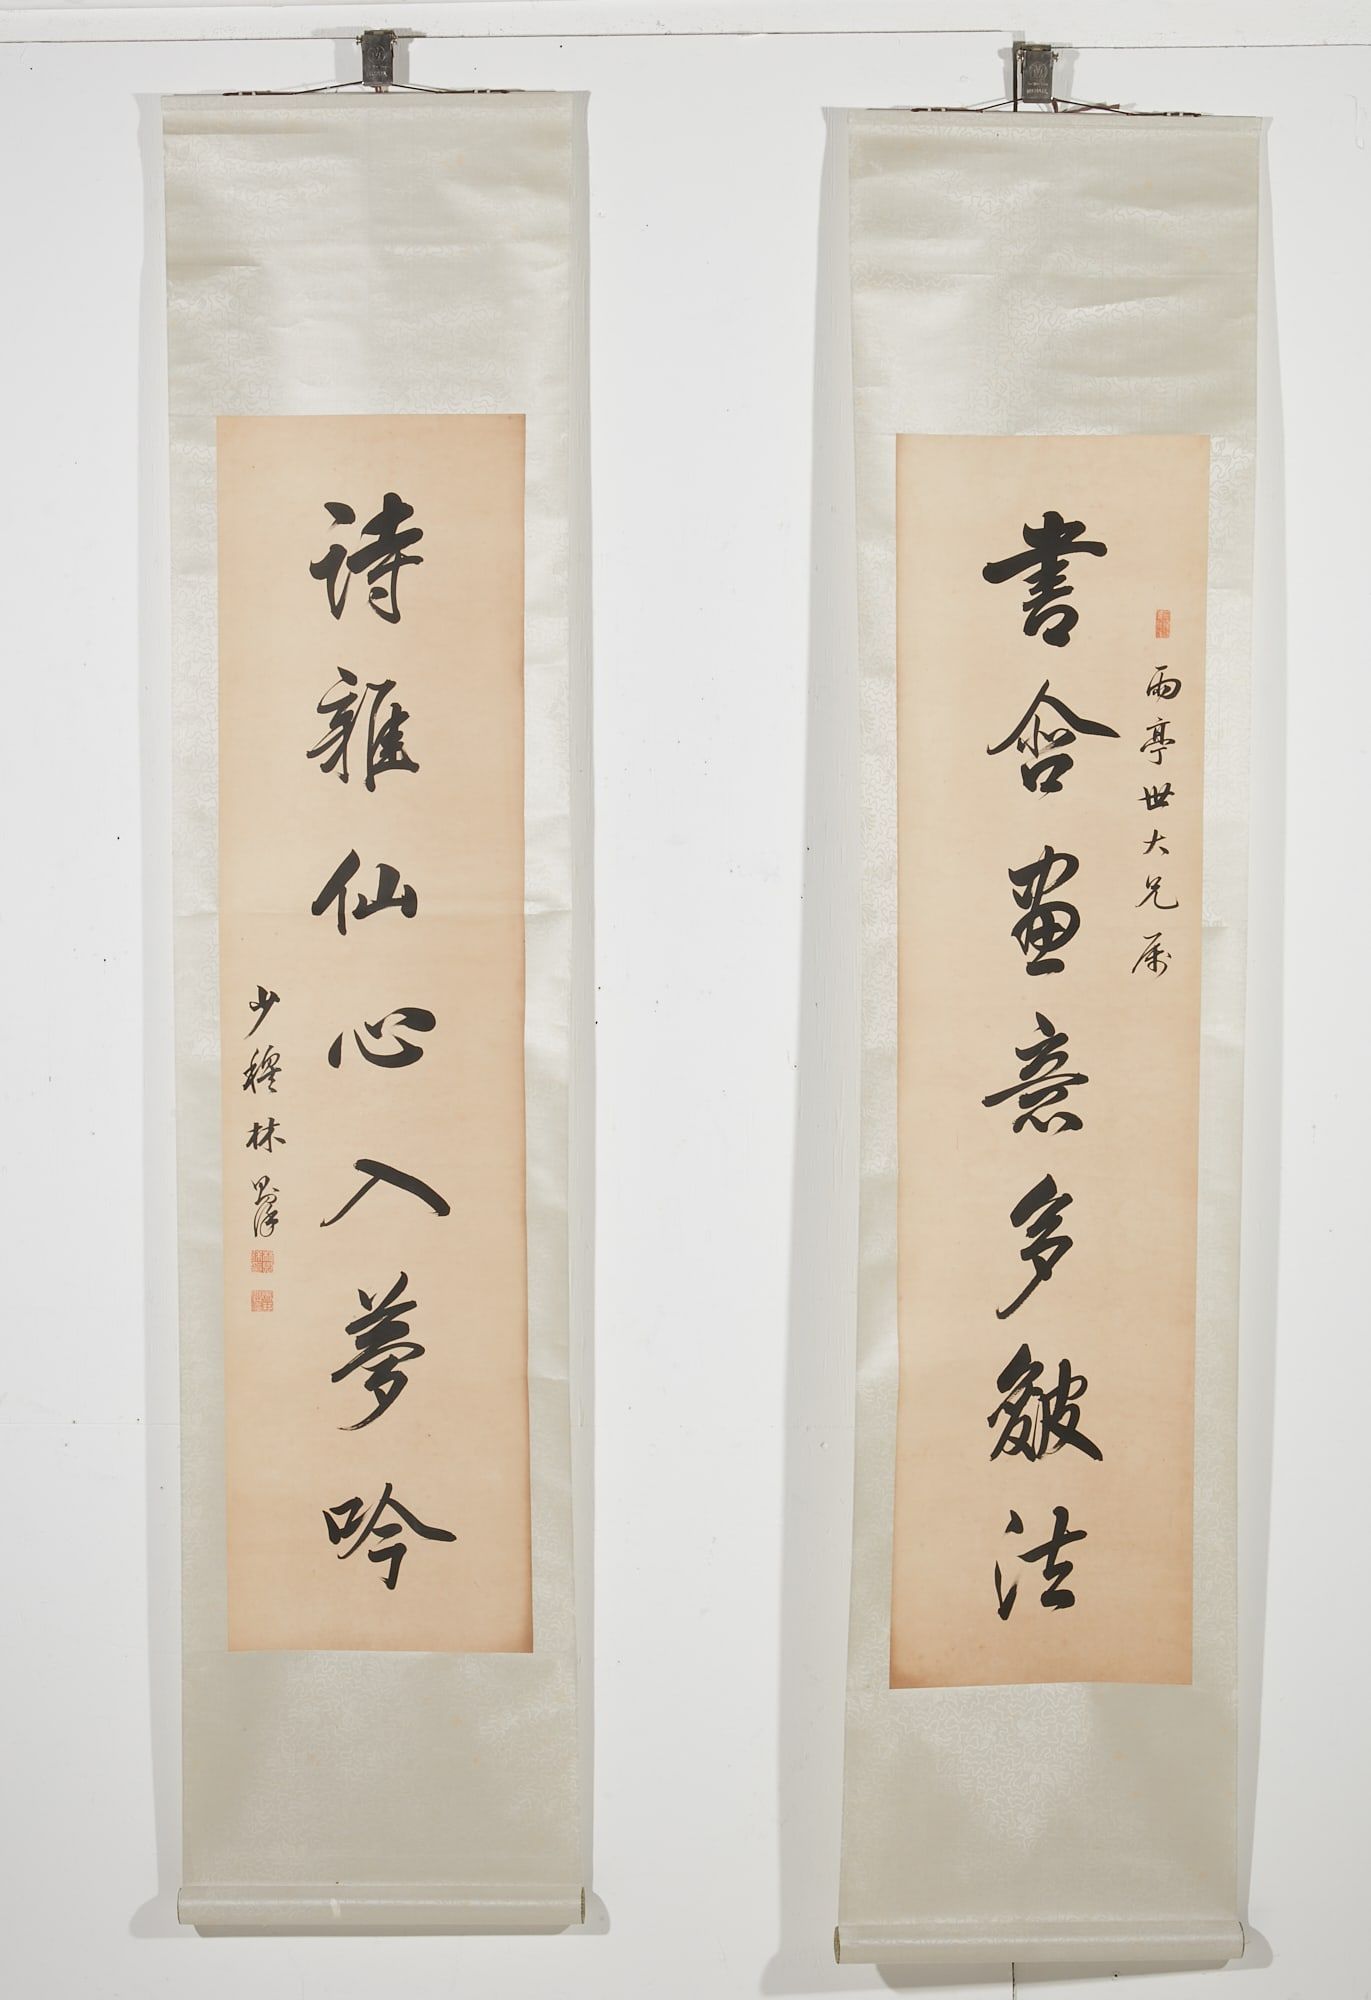 書含畫意多皴法
雨亭世大兄属
詩雜仙心入夢吟
少穆林則徐